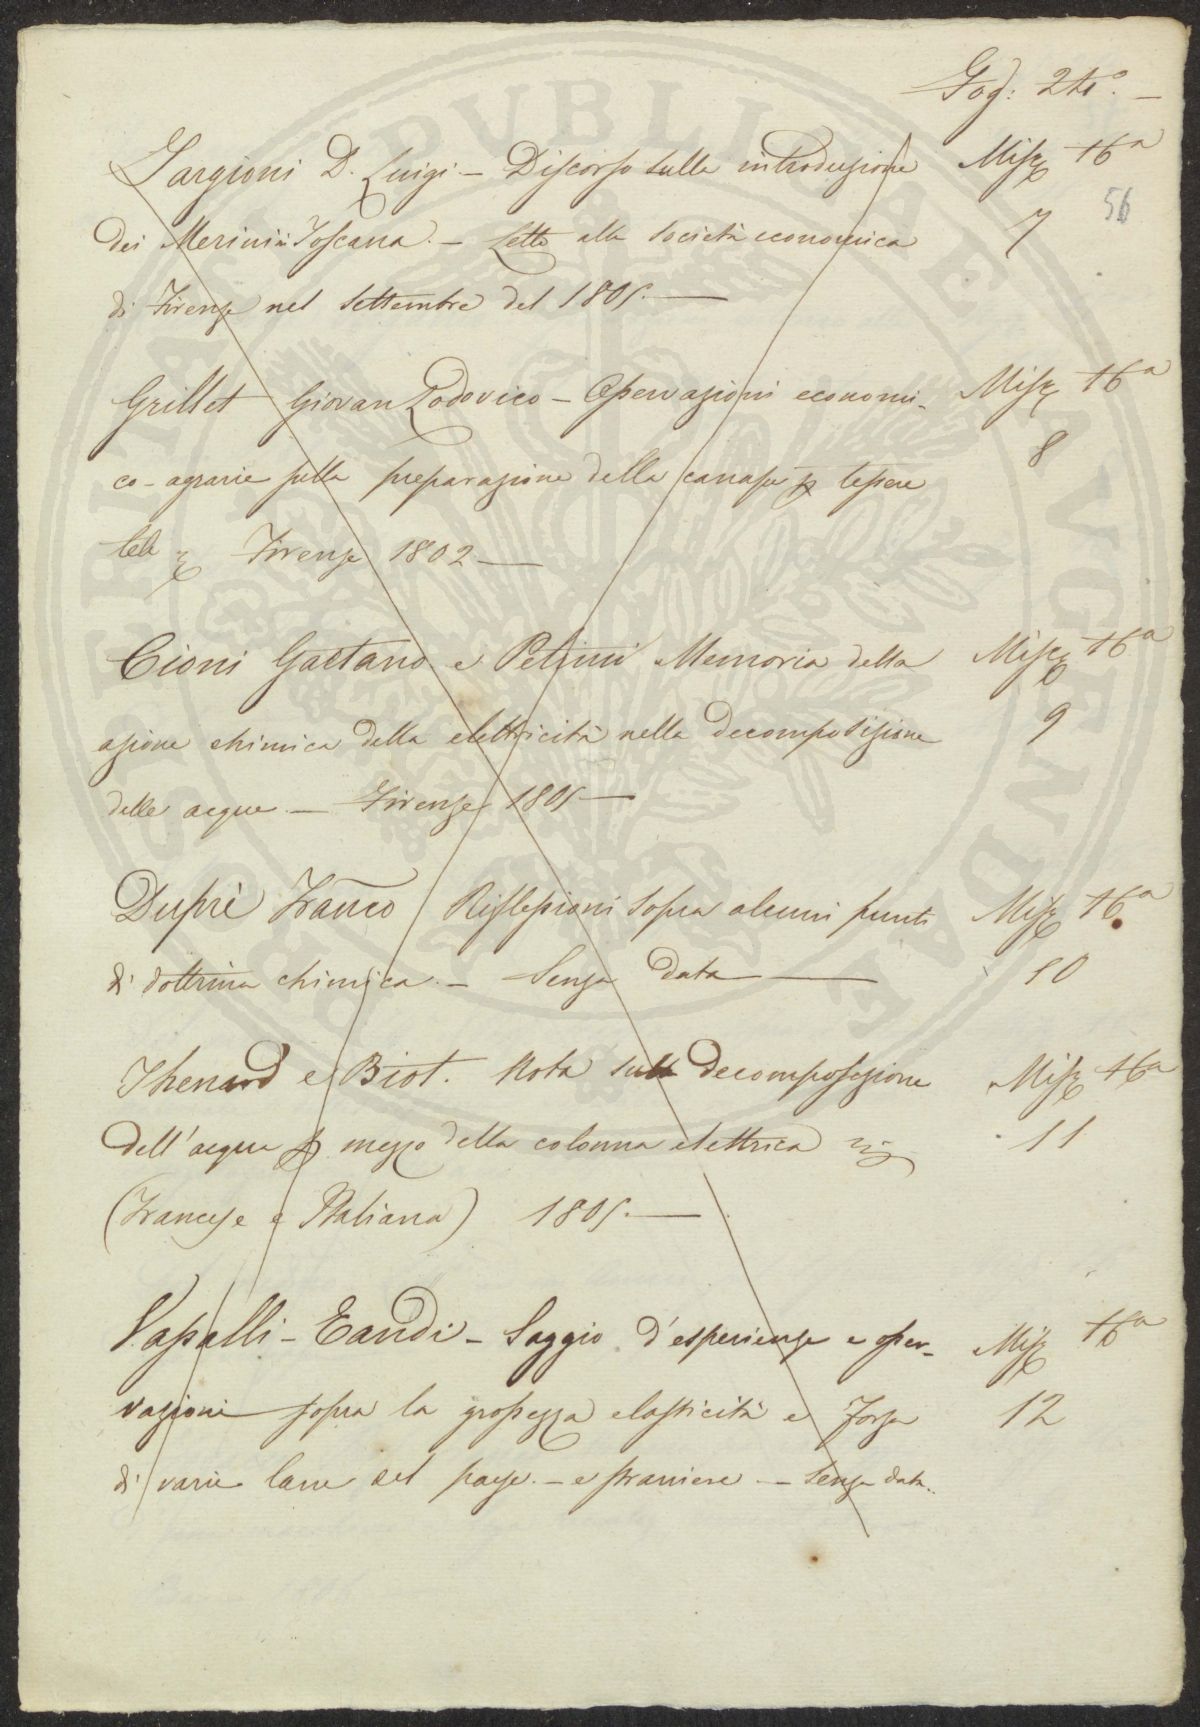 Fog: 24to. —
Targioni D. Luigi — Discorso sulla introduzione Misc 16a
56
dei Merini in Toscana. — Letto alla Società economica 7
di Firenze nel Settembre del 1805. —
Grillet Giovan Lodovico — Osservazioni economi- Misc 16a
8
co-agrarie sulla preparazione della canapa p tessere
tele & Firenze 1802 —
Cioni Gaetano e Petrini Memoria della Misc 16a
azione chimica della elettricità nella decomposizione 9
delle acque — Firenze 1805 —
Dupré Franco Riflessioni sopra alcuni punti Misc 16a
di dottrina chimica. — Senza data — 10
Thenard e Biot. Nota sulla decomposizione Misc 16a
dell'acqua p mezzo della colonna elettrica 11
(Francese e Italiana) 1805. —
Vassalli-Eandi — Saggio d'esperienze e osser- Misc 16a
vazioni sopra la grossezza elasticità e forza 12
di varie lane del paese. — e straniere. — Senza data..